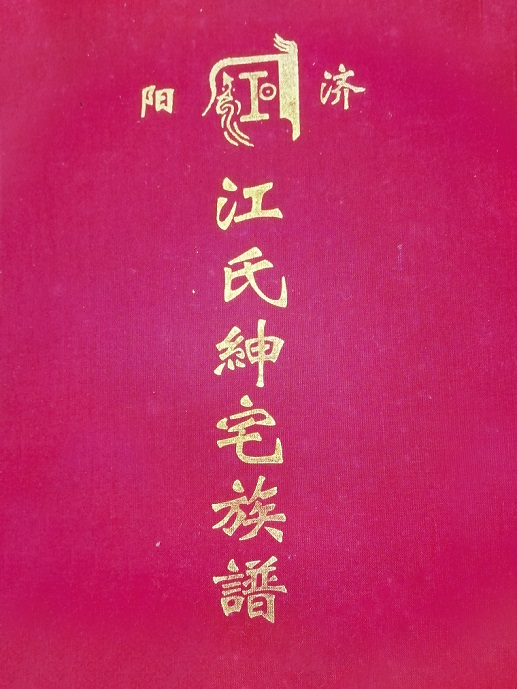 济阳
江氏紳宅族譜